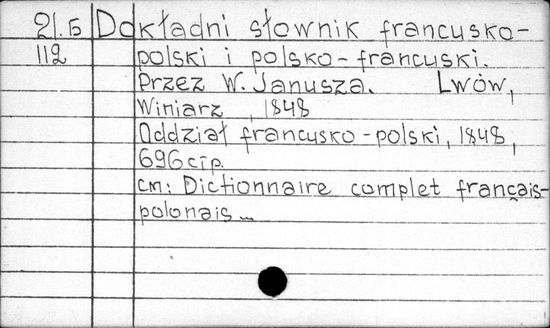 21.Б Dokładni słownik francusko-
112 polski i polsko-francuski.
Przez W. Janusza. Lwów,
Winiarz, 1848
Oddział francusko-polski, 1848,
696 стр.
см: Dictionnaire complet français-
polonais...